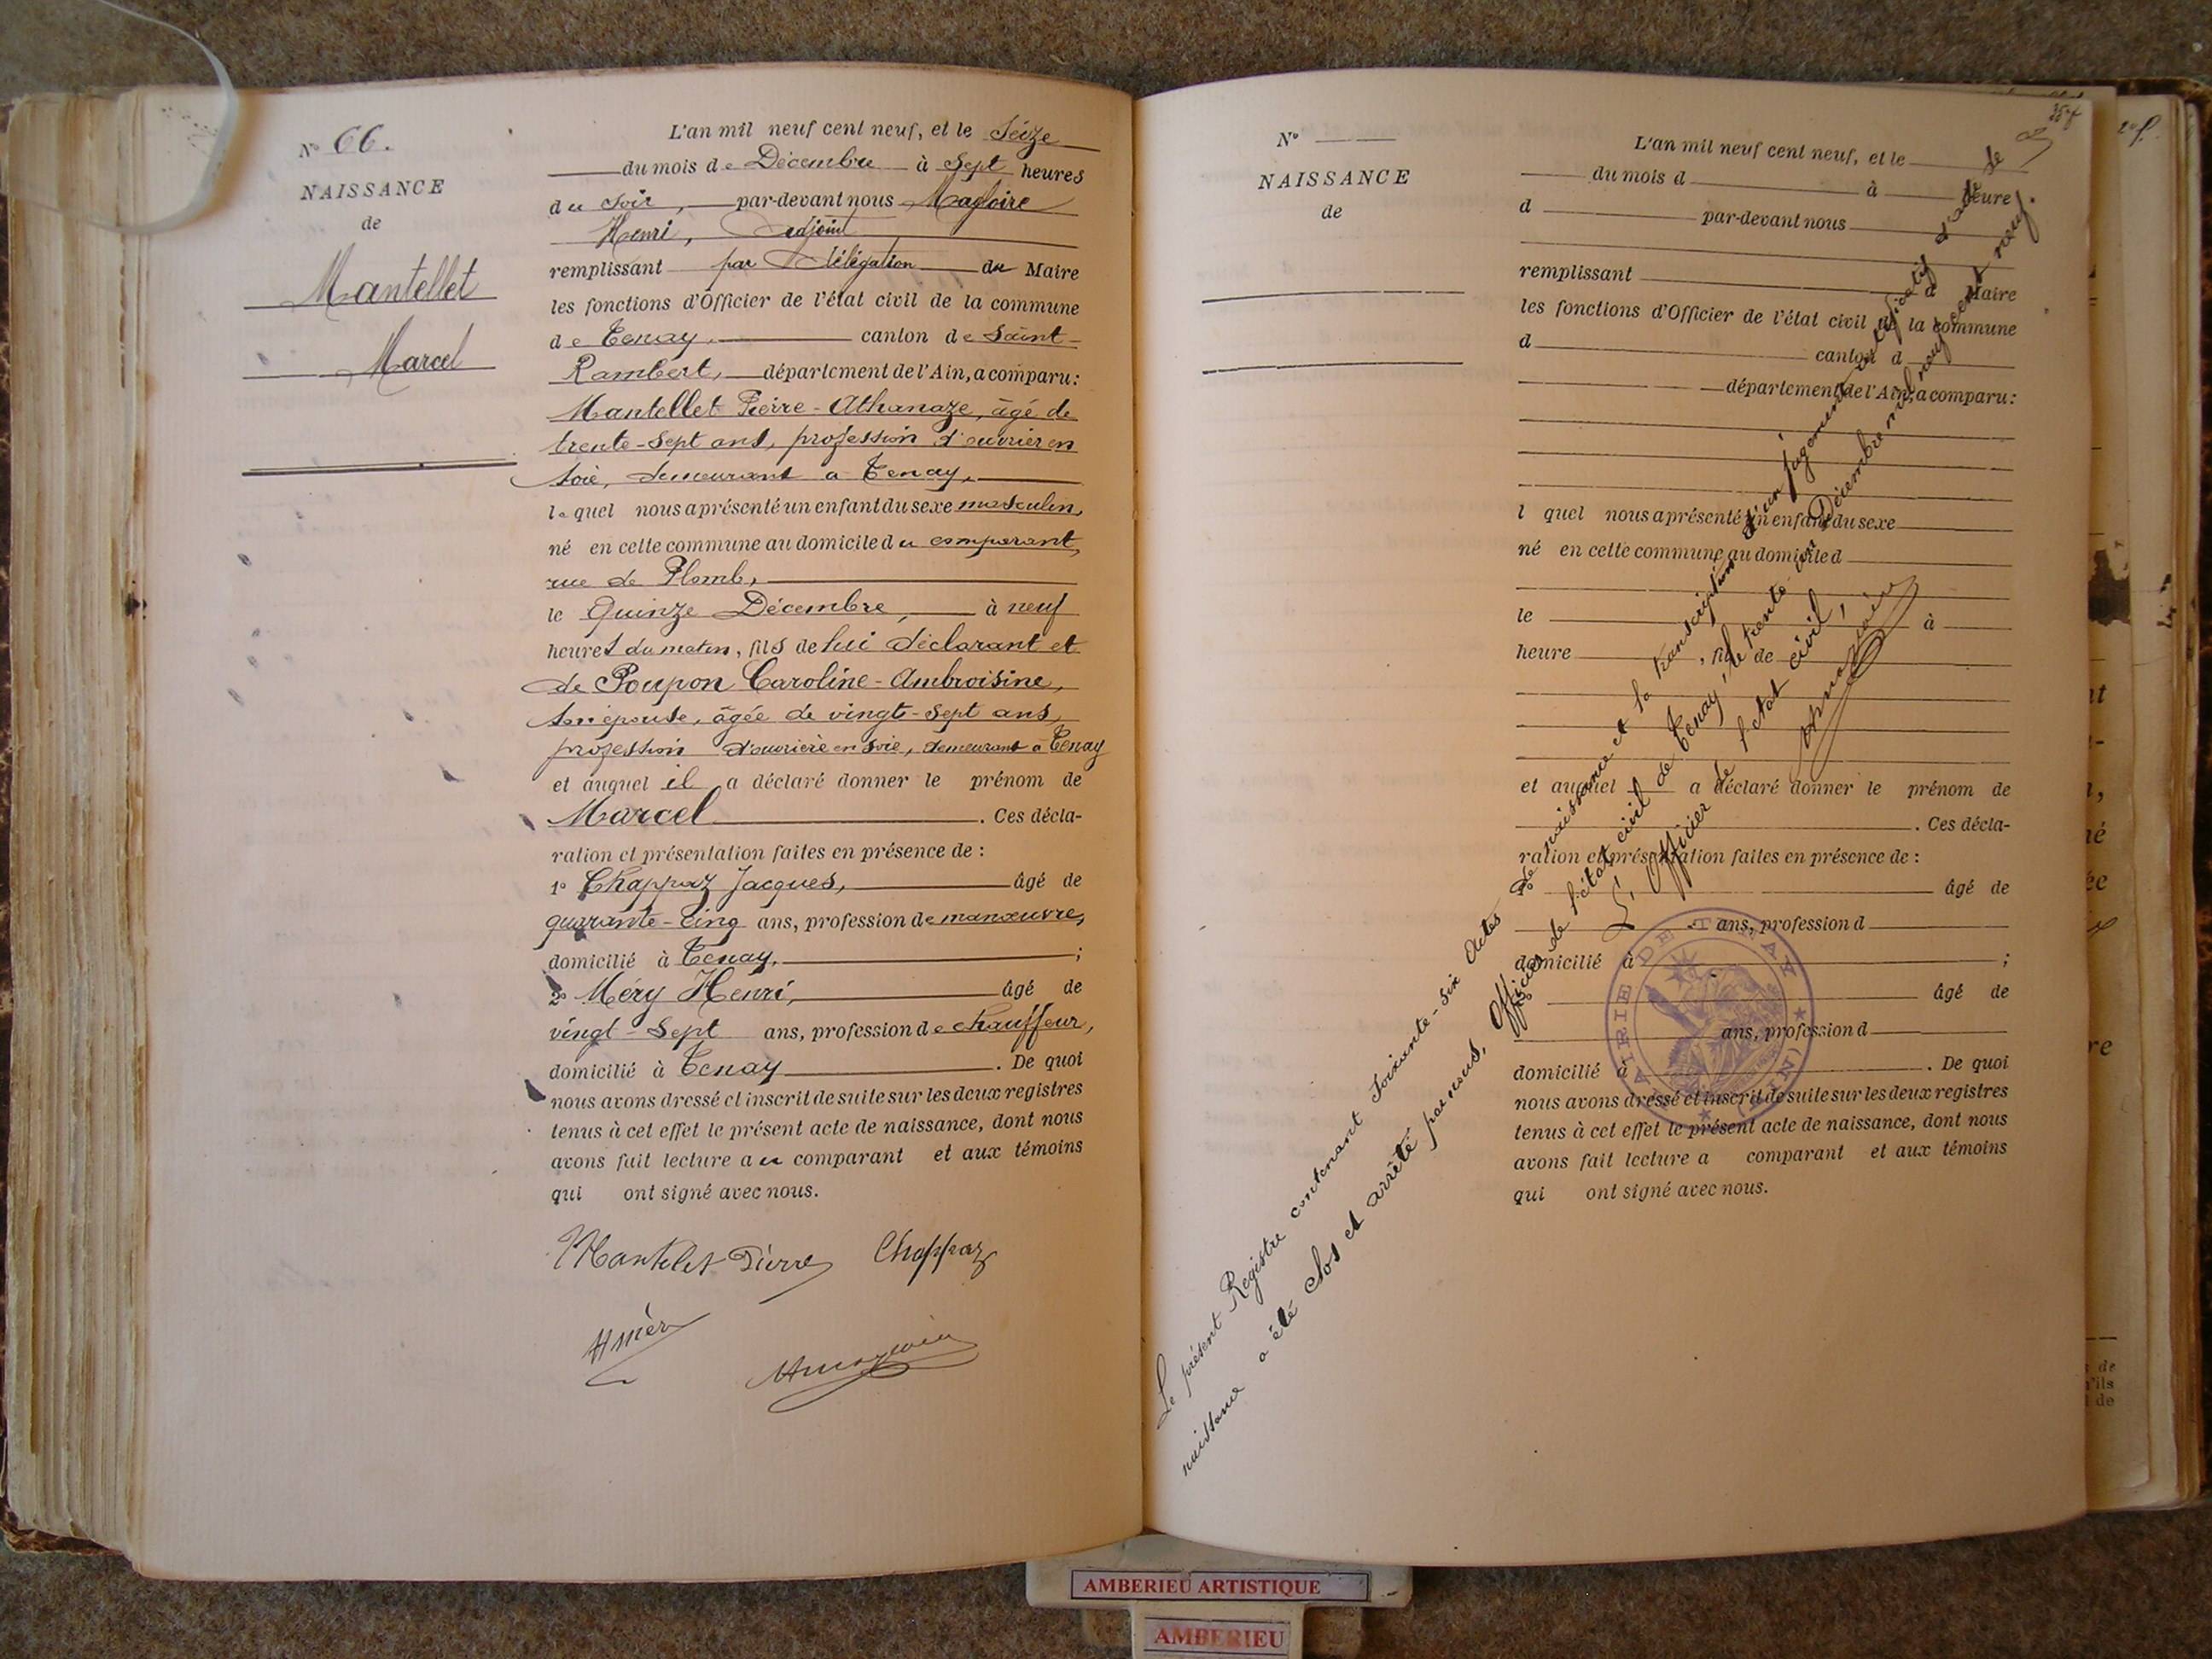 N° 66.
NAISSANCE
de
Mantellet
Marcel
L'an mil neuf cent neuf, et le Seize
du mois de Décembre à Sept heures
du soir, par-devant nous Magloire
Henri, Adjoint
remplissant par Délégation du Maire
les fonctions d'Officier de l'état civil de la commune
de Tenay, canton de Saint-
Rambert, département de l'Ain, a comparu:
Mantellet Pierre-Athanaze, âgé de
trente-sept ans, profession d'ouvrier en
soie, demeurant a Tenay,
lequel nous a présenté un enfant du sexe masculin,
né en cette commune au domicile du comparant,
rue de Plomb,
le Quinze Décembre, à neuf
heures du matin, fils de lui déclarant et
de Poupon Caroline-Ambroisine,
son épouse, âgée de vingt-sept ans,
profession d'ouvrière en soie, demeurant à Tenay
et auquel il a déclaré donner le prénom de
Marcel. Ces décla-
ration et présentation faites en présence de :
1° Chappaz Jacques, âgé de
quarante-cinq ans, profession de manœuvre,
domicilié à Tenay, ;
2° Méry Henri, âgé de
vingt-sept ans, profession de chauffeur,
domicilié à Tenay. De quoi
nous avons dressé et inscrit de suite sur les deux registres
tenus à cet effet le présent acte de naissance, dont nous
avons fait lecture au comparant et aux témoins
qui ont signé avec nous.
Mantelet Pierre Chappaz
N°
NAISSANCE
de
L'an mil neuf cent neuf, et le
du mois d à heure
d par-devant nous
remplissant d Maire
les fonctions d'Officier de l'état civil de la commune
d canton d
département de l'Ain, a comparu:
l quel nous a présenté un enfant du sexe
né en cette commune au domicile d
le à
heure , fil de
et auquel a déclaré donner le prénom de
. Ces décla-
ration et présentation faites en présence de :
1° âgé de
ans, profession d
domicilié à ;
2° âgé de
ans, profession d
domicilié à . De quoi
nous avons dressé et inscrit de suite sur les deux registres
tenus à cet effet le présent acte de naissance, dont nous
avons fait lecture a comparant et aux témoins
qui ont signé avec nous.
Le présent Registre contenant soixante-six actes de naissance et la transcription d'un jugement rectificatif d'acte de
naissance a été clos et arrêté par nous, Officier de l'état civil de Tenay, le trente un Décembre mil neuf cent neuf.
L'Officier de l'état civil,
MAIRIE DE TENAY
(AIN)
AMBERIEU ARTISTIQUE
AMBERIEU